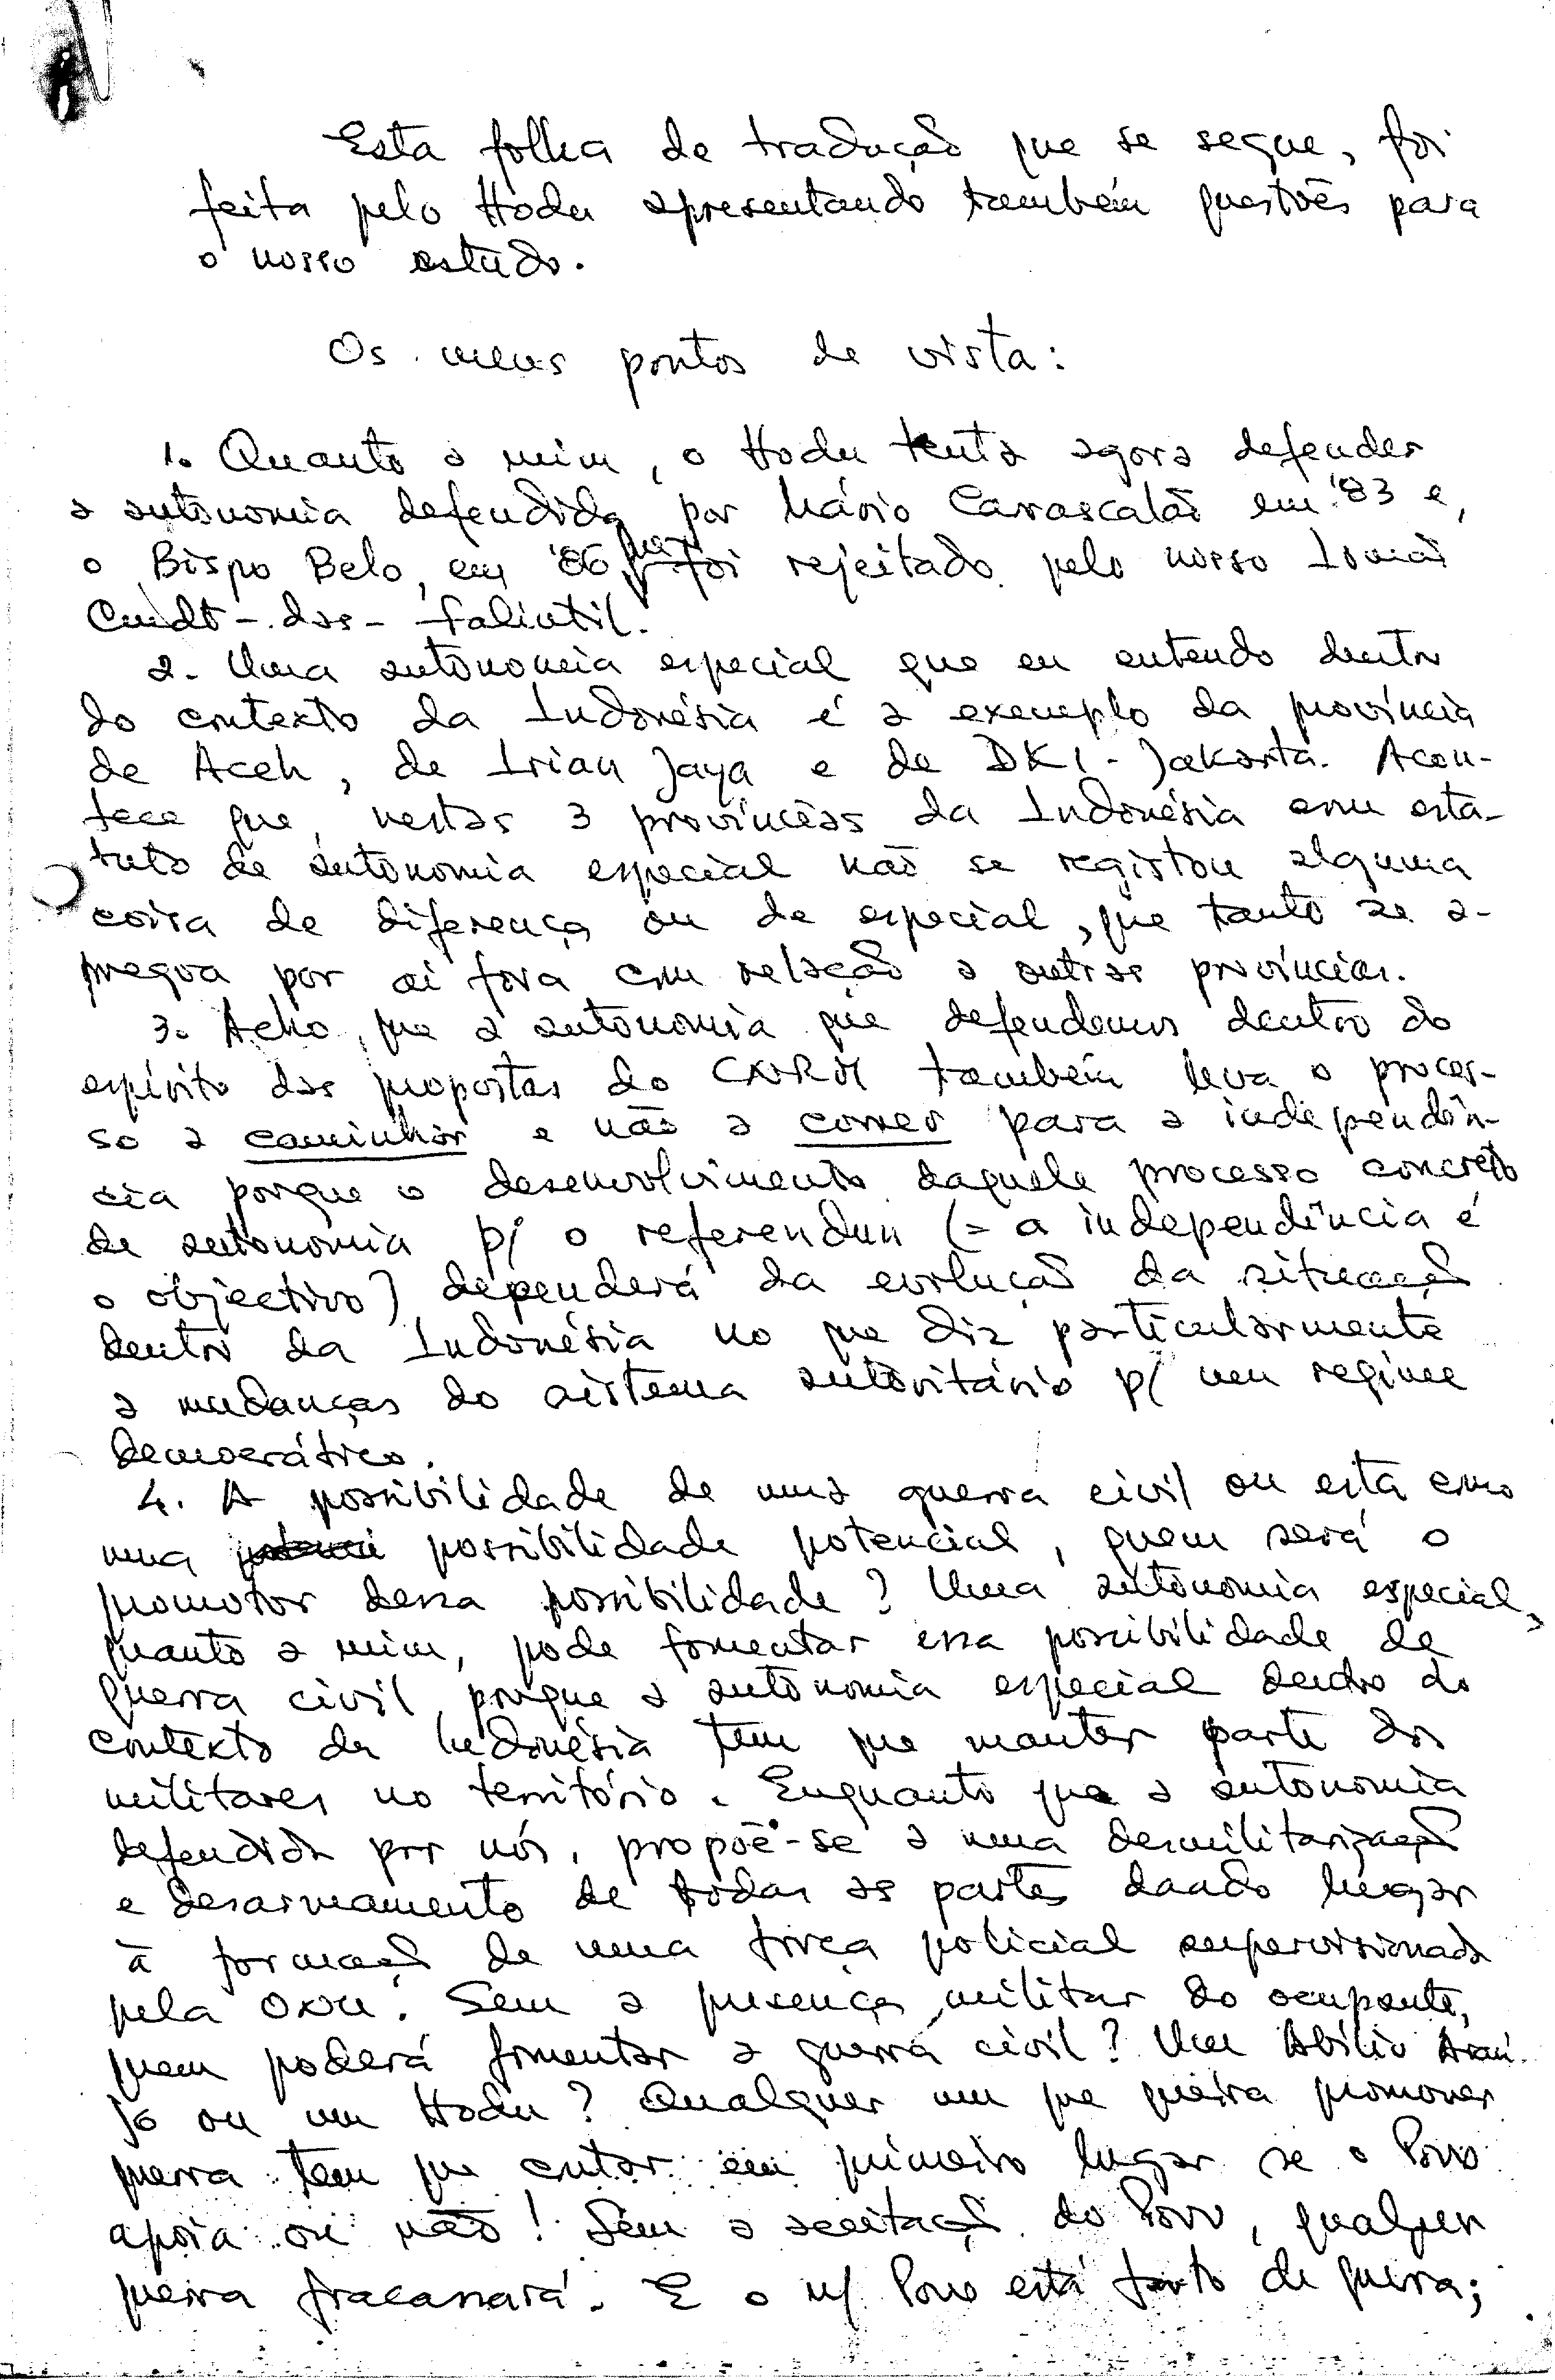 Esta folha de tradução que se segue, foi
feita pelo Hodu apresentando também questões para
o nosso estudo.
Os meus pontos de vista:
1. Quanto a mim, o Hodu tenta agora defender
a autonomia defendida por Mário Carrascalão em '83 e,
o Bispo Belo, em '86, que foi rejeitado pelo nosso Irmão
Cmdt-das-Falintil.
2. Uma autonomia especial que eu entendo dentro
do contexto da Indonésia é a exemplo da província
de Aceh, de Irian Jaya e de DKI-Jakarta. Acon-
tece que, nestas 3 províncias da Indonésia com esta-
tuto de autonomia especial não se registou alguma
coisa de diferença ou de especial, que tanto se a-
pregoa por aí fora com relação a outras províncias.
3. Acho que a autonomia que defendemos dentro do
espírito das propostas do CNRM também leva o proces-
so a caminhar e não a correr para a independên-
cia porque o desenvolvimento daquele processo concreto
de autonomia p/ o referendun (= a independência é
o objectivo) dependerá da evolução da situação
dentro da Indonésia no que diz particularmente
a mudanças do sistema autoritário p/ um regime
democrático.
4. A possibilidade de uma guerra civil ou esta como
uma possibilidade potencial, quem será o
promotor dessa possibilidade? Uma autonomia especial,
quanto a mim, pode fomentar essa possibilidade de
guerra civil porque a autonomia especial dentro do
contexto da Indonésia tem que manter parte dos
militares no território. Enquanto que a autonomia
defendida por nós, propõe-se a uma desmilitarização
e desarmamento de todas as partes dando lugar
à formação de uma força policial supervisionada
pela ONU. Sem a presença militar do ocupante,
quem poderá fomentar a guerra civil? Um Abílio Araú-
jo ou um Hodu? Qualquer um que queira promover
guerra tem que contar em primeiro lugar se o Povo
apoia ou não! Sem a aceitação do Povo, qualquer
guerra fracassará. E o n/ Povo está farto de guerra;